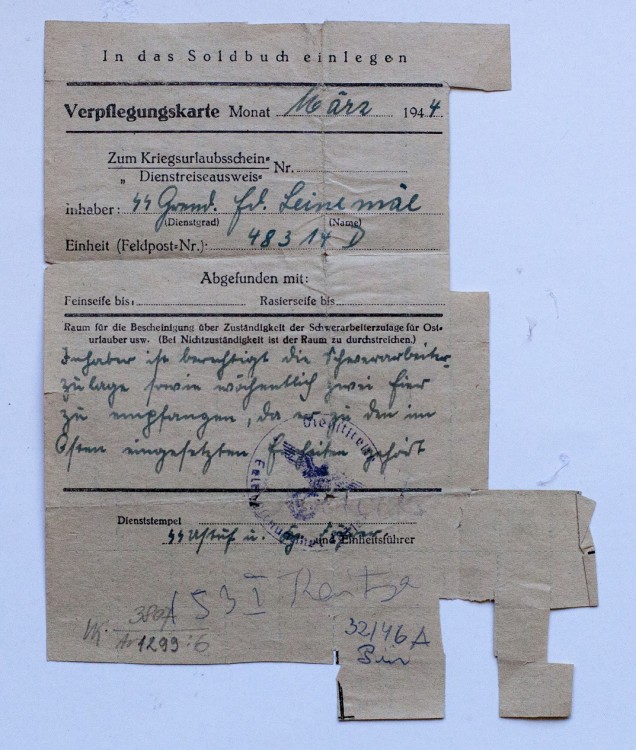 In das Soldbuch einlegen
Verpflegungskarte Monat März 1944.
Zum Kriegsurlaubsschein=
„ Dienstreiseausweis= Nr.
inhaber: SS Grend. Ed. Leinemäl
(Dienstgrad) (Name)
Einheit (Feldpost=Nr.): 48314 D
Abgefunden mit:
Feinseife bis: Rasierseife bis
Raum für die Bescheinigung über Zuständigkeit der Schwerarbeiterzulage für Ost=
urlauber usw. (Bei Nichtzuständigkeit ist der Raum zu durchstreichen.)
Inhaber ist berechtigt die Schwerarbeiter-
zulage sowie wöchentlich zwei Eier
zu empfangen, da er zu den im
Osten eingesetzten Einheiten gehört
Dienststempel
SS Ustuf u. und Einheitsführer
153 I
3807
VK. Ar 1299:6
32/46 A